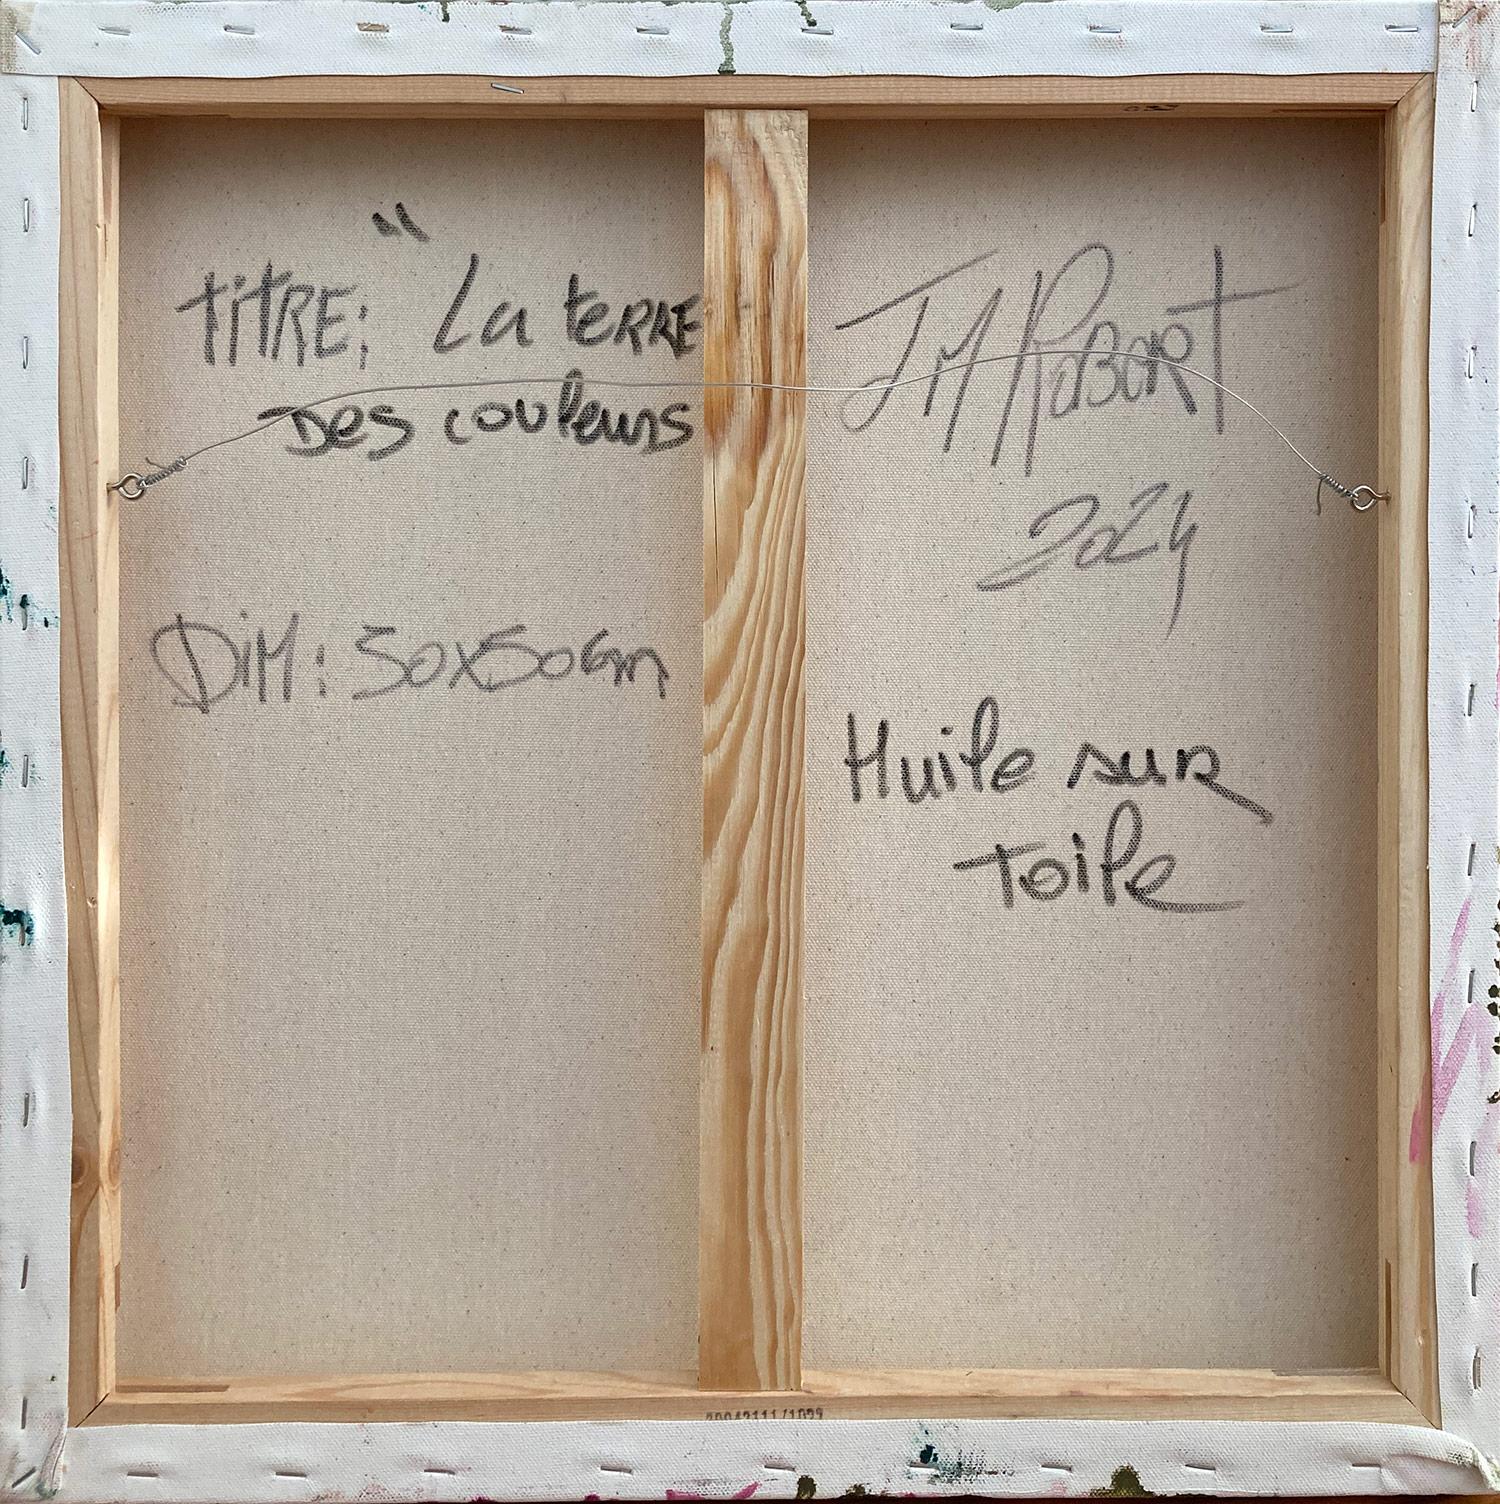 TiTRE: " La teRRE
Des couleurs
DiM: 50x50cm
JM RoBERT
2024
Huile sur
Toile